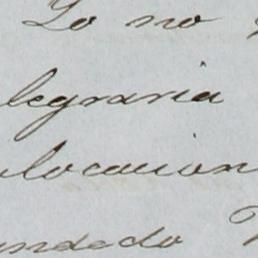 Lo no
legraria
locacion
undedo